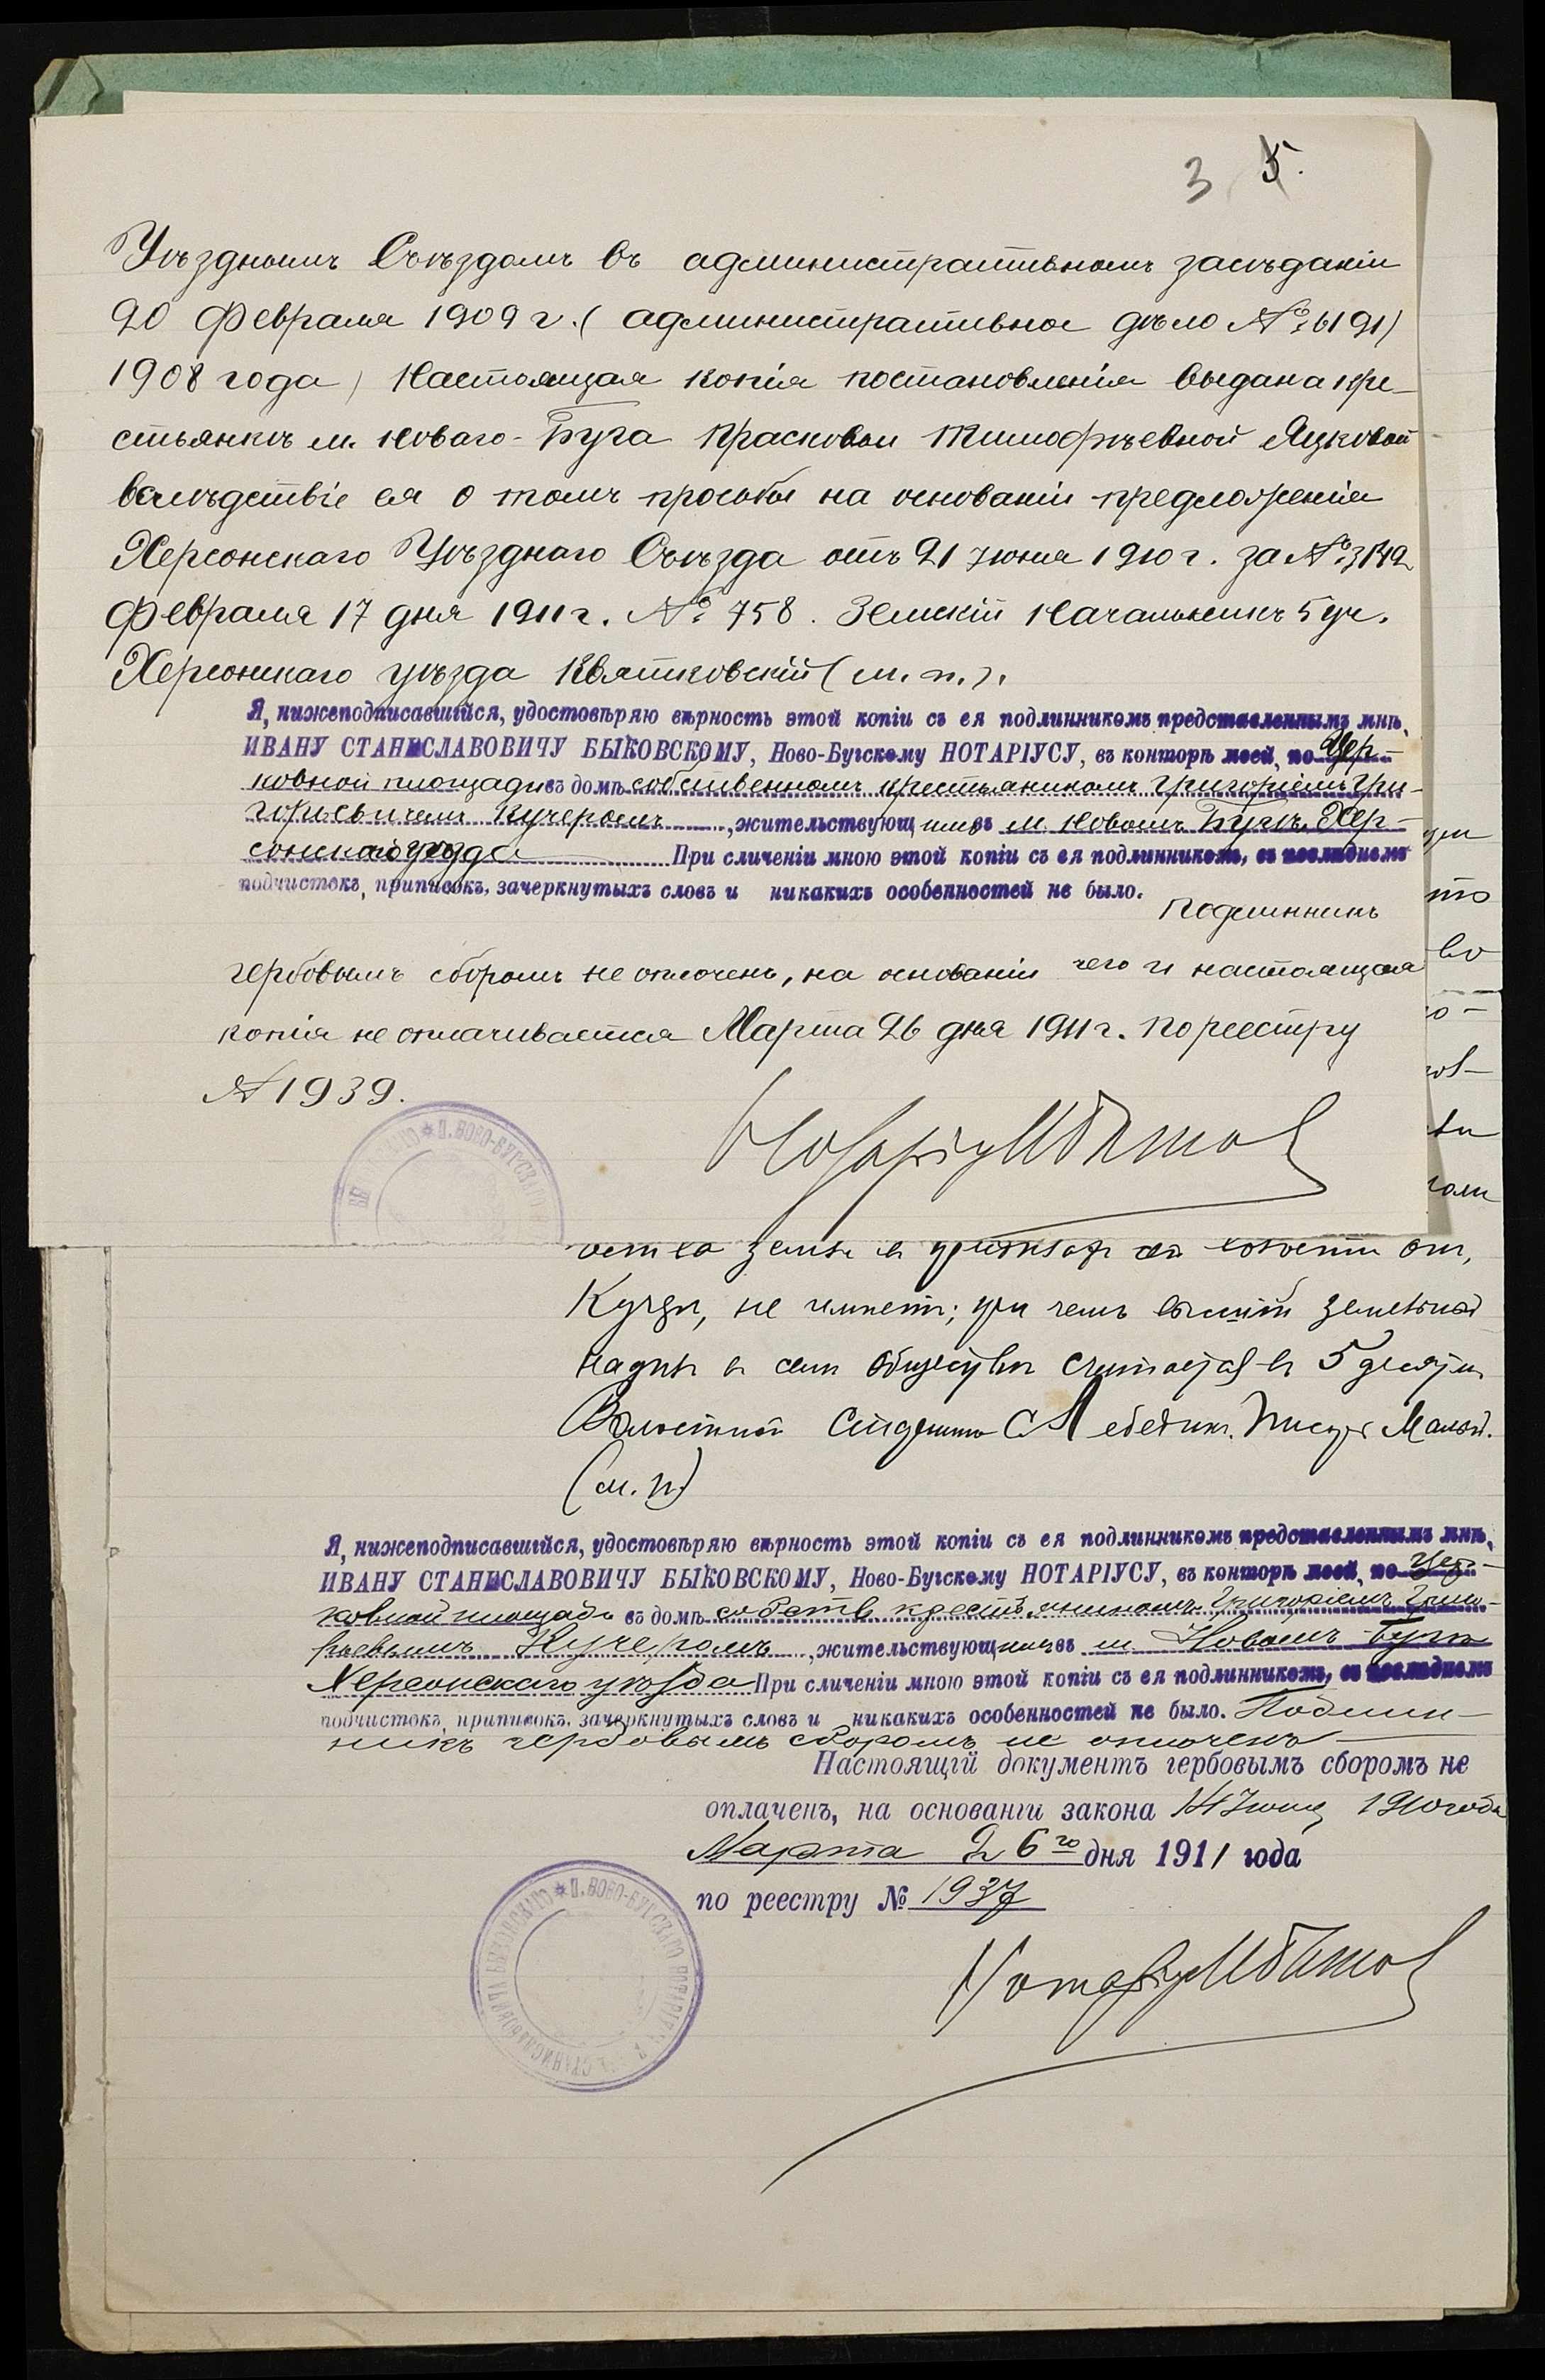 3 5.
Уѣзднымъ Съѣздомъ въ административномъ засѣданіи
20 Февраля 1909 г. ( административное дѣло № 6191)
1908 года) Настоящая копія постановленія выдана кре-
стьянкѣ м. Новаго-Буга Прасковьи Тимофѣевной Яцковой
вслѣдствіе ея о томъ просьбы на основаніи предложенія
Херсонскаго Уѣзднаго Съѣзда отъ 21 Іюня 1910 г. за № 3142
Февраля 17 дня 1911 г. № 758. Земскій Начальникъ 5 уч.
Херсонскаго уѣзда Квятковскій (м. п.).
Я, нижеподписавшійся, удостовѣряю вѣрность этой копіи съ ея подлинникомъ представленнымъ мнѣ,
ИВАНУ СТАНИСЛАВОВИЧУ БЫКОВСКОМУ, Ново-Бугскому НОТАРІУСУ, въ конторѣ моей, по Цер-
ковной площади въ домѣ собственномъ крестьяниномъ Григоріемъ Гри-
горьевичемъ Кучеромъ, жительствующимъ въ м. Новомъ Бугѣ, Хер-
сонскаго уѣзда При сличеніи мною этой копіи съ ея подлинникомъ, въ послѣднемъ
подчистокъ, приписокъ, зачеркнутыхъ словъ и никакихъ особенностей не было.
Подлинникъ
гербовымъ сборомъ не оплоченъ, на основаніи чего и настоящая
копія не оплачивается Марта 26 дня 1911 г. По реестру
№ 1939.
Нотаріусъ
земли въ
Кучеръ, не имѣетъ; при чемъ земельной
надѣлъ въ семъ обществѣ считается въ 5 десятин
Волостной Старшина С Лебедин. Писарь Малый.
(м. п)
Я, нижеподписавшійся, удостовѣряю вѣрность этой копіи съ ея подлинникомъ представленнымъ мнѣ,
ИВАНУ СТАНИСЛАВОВИЧУ БЫКОВСКОМУ, Ново-Бугскому НОТАРІУСУ, въ конторѣ моей, по Цер-
ковной площади въ домѣ собств крестьяниномъ Григоріемъ Григо-
рьевымъ Кучеромъ, жительствующимъ въ м. Новомъ-Бугѣ
Херсонскаго уѣзда При сличеніи мною этой копіи съ ея подлинникомъ, въ послѣднемъ
подчистокъ, приписокъ, зачеркнутыхъ словъ и никакихъ особенностей не было. Подлин-
никъ гербовымъ сборомъ не оплоченъ
Настоящій документъ гербовымъ сборомъ не
оплаченъ, на основаніи закона 14 Іюня 1910 года
Марта 26го дня 1911 года
по реестру № 1937
Нотаріусъ